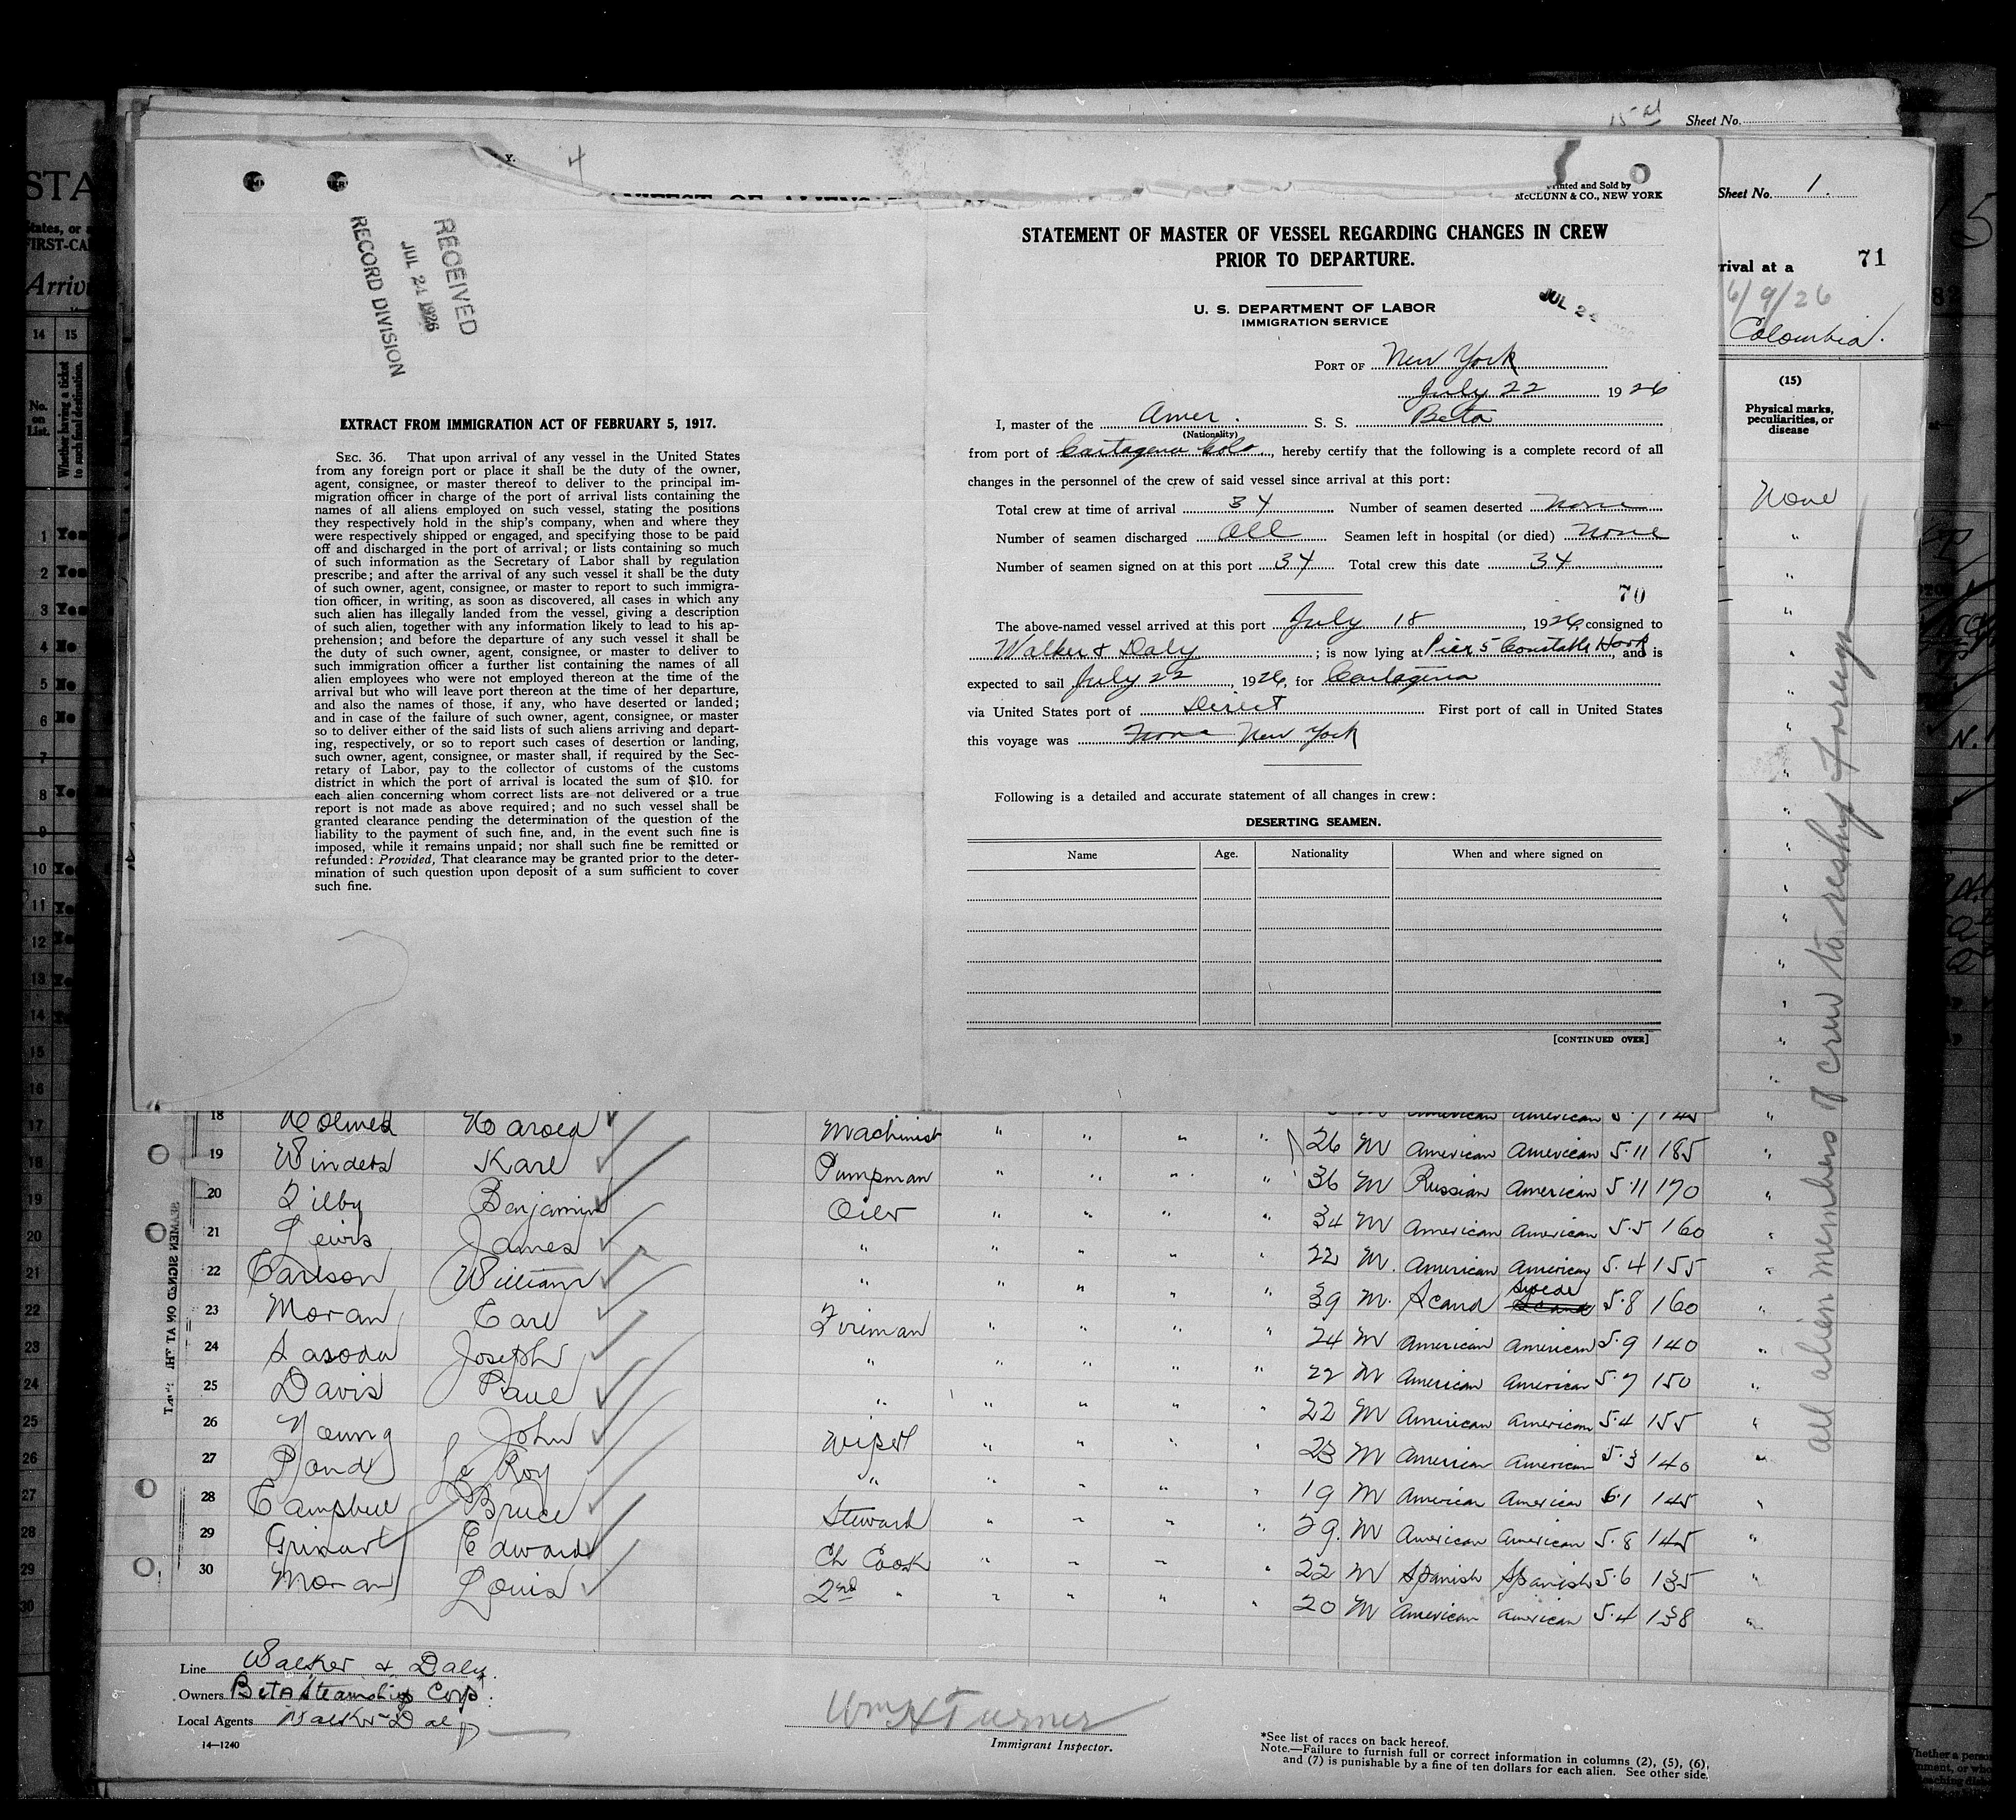 15
Sheet No.
STA
States, or a
FIRST-CA
Arriv
Y.
4
MANIFEST OF ALIENS
Printed and Sold by
McCLUNN & CO., NEW YORK
Sheet No. 1.
RECEIVED
JUL 24 1926
RECORD DIVISION
STATEMENT OF MASTER OF VESSEL REGARDING CHANGES IN CREW
PRIOR TO DEPARTURE.
U. S. DEPARTMENT OF LABOR
IMMIGRATION SERVICE
JUL 2
rival at a 71
6/9/26
Colombia.
PORT OF New York
July 22 1926
I, master of the Amer. S. S. Beta
(Nationality)
from port of Cartagena Colo, hereby certify that the following is a complete record of all
changes in the personnel of the crew of said vessel since arrival at this port:
Total crew at time of arrival 34 Number of seamen deserted none
Number of seamen discharged All Seamen left in hospital (or died) none
Number of seamen signed on at this port 34 Total crew this date 34
70
The above-named vessel arrived at this port July 18, 1926, consigned to
Walker & Daly; is now lying at Pier 5 Constable Hook, and is
expected to sail July 22, 1926, for Cartagena
via United States port of Direct First port of call in United States
this voyage was None New York
Following is a detailed and accurate statement of all changes in crew:
DESERTING SEAMEN.
Name Age. Nationality When and where signed on
[CONTINUED OVER]
EXTRACT FROM IMMIGRATION ACT OF FEBRUARY 5, 1917.
SEC. 36. That upon arrival of any vessel in the United States
from any foreign port or place it shall be the duty of the owner,
agent, consignee, or master thereof to deliver to the principal im-
migration officer in charge of the port of arrival lists containing the
names of all aliens employed on such vessel, stating the positions
they respectively hold in the ship's company, when and where they
were respectively shipped or engaged, and specifying those to be paid
off and discharged in the port of arrival; or lists containing so much
of such information as the Secretary of Labor shall by regulation
prescribe; and after the arrival of any such vessel it shall be the duty
of such owner, agent, consignee, or master to report to such immigra-
tion officer, in writing, as soon as discovered, all cases in which any
such alien has illegally landed from the vessel, giving a description
of such alien, together with any information likely to lead to his ap-
prehension; and before the departure of any such vessel it shall be
the duty of such owner, agent, consignee, or master to deliver to
such immigration officer a further list containing the names of all
alien employees who were not employed thereon at the time of the
arrival but who will leave port thereon at the time of her departure,
and also the names of those, if any, who have deserted or landed;
and in case of the failure of such owner, agent, consignee, or master
so to deliver either of the said lists of such aliens arriving and depart-
ing, respectively, or so to report such cases of desertion or landing,
such owner, agent, consignee, or master shall, if required by the Sec-
retary of Labor, pay to the collector of customs of the customs
district in which the port of arrival is located the sum of $10. for
each alien concerning whom correct lists are not delivered or a true
report is not made as above required; and no such vessel shall be
granted clearance pending the determination of the question of the
liability to the payment of such fine, and, in the event such fine is
imposed, while it remains unpaid; nor shall such fine be remitted or
refunded: Provided, That clearance may be granted prior to the deter-
mination of such question upon deposit of a sum sufficient to cover
such fine.
(15)
Physical marks,
peculiarities, or
disease
None
all alien members of crew to reship foreign
18 Holmes Harold American American 5.7 145
19 Winders Karl Machinist " " " " 26 M American American 5.11 185 "
20 Filby Benjamin Pumpman " " " " 36 M Russian American 5.11 170 "
21 Lewis James Oiler " " " " 34 M American American 5.5 160 "
22 Carlson William " " " " " 22 M. American American 5.4 155 "
23 Moran Earl " " " " " 39 M. Scand Swede 5.8 160 "
24 Sasoda Joseph Fireman " " " " 24 M American American 5.9 140 "
25 Davis Paul " " " " " 22 M American American 5.7 150 "
26 Young John " " " " " 22 M American American 5.4 155 "
27 Pond Le Roy Wiper " " " " 23 M American American 5.3 140 "
28 Campbell Bruce " " " " " 19 M American American 6.1 145 "
29 Edward Steward " " " " 29. M American American 5.8 145 "
30 Moran Louis Ch Cook " " " " 22 M Spanish Spanish 5.6 135 "
2nd " " " " " 20 M American American 5.4 138 "
Line Walker & Daly.
Owners Beta Steamship Corp.
Local Agents Walker Daly
14—1240
Wm H Turner
Immigrant Inspector.
*See list of races on back hereof.
Note.—Failure to furnish full or correct information in columns (2), (5), (6),
and (7) is punishable by a fine of ten dollars for each alien. See other side.
14 15
No.
on
List.
Whether having a ticket
to such final destination.
1 Yes
2 Yes
3 Yes
4 No
5 No
6 No
7
8
9
10
11
12
13
14
15
16
17
18
19
20
21
22
23
24
25
26
27
28
29
30